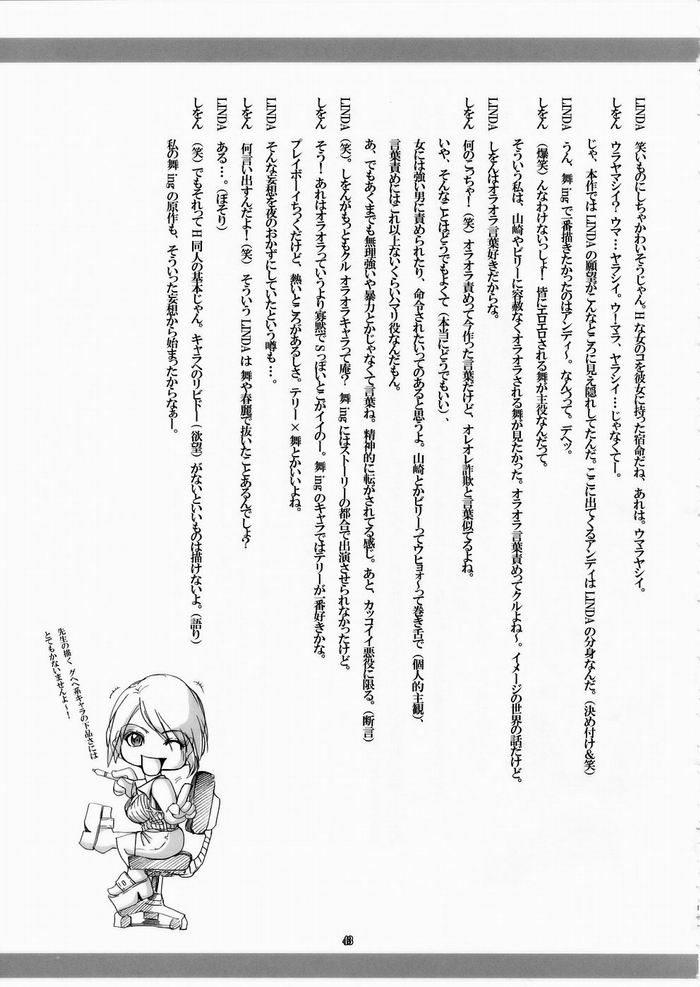 LINDA　笑いものにしちゃかわいそうじゃん。Hな女のコを彼女に持つた宿命だね、あれは。ウマラヤシイ。
しをん　ウラヤマシイ？ウマ…ヤラシイ。ウーマラ、ヤラシイ…じゃなくてー。
じゃ、本作ではLINDAの願望がこんなところに見え隠れしてたんだ。ここに出てくるアンディはLINDAの分身なんだ。（決め付け＆笑）
LINDA　うん、舞ingで一番描きたかったのはアンディ〜。なんつって。デヘッ。
しをん　（爆笑）んなわけないっしょ！皆にエロエロされる舞が主役なんだって。
そういう私は、山崎やビリーに容赦なくオラオラされる舞が見たかった。オラオラ言葉責めってクルよね〜。イメージの世界の話だけど。
LINDA　しをんはオラオラ言葉好きだからな。
しをん　何のこっちゃ！（笑）オラオラ責めって今作った言葉だけど、オレオレ詐欺と言葉似てるよね。
いや、そんなことはどうでもよくて（本当にどうでもいい）、
女には強い男に責められたり、命令されたいってのあると思うよ。山崎とかビリーってウヒョォ〜って巻き舌で（個人的主観）、
言葉責めにはこれ以上ないくらいハマリ役なんだもん。
あ、でもあくまでも無理強いや暴力とかじゃなくて言葉ね。精神的に転がされてる感じ。あと、カッコイイ悪役に限る。（断言）
LINDA　（笑）。しをんがもっともクルオラオラキャラって庵？舞ingにはストーリーの都合で出演させられなかったけど。
しをん　そう！あれはオラオラっていうより寡黙でSっぽいとこがイイのー。舞ingのキャラではテリーが一番好きかな。
プレイボーイちっくだけど、熱いところがあるしさ。テリー×舞とかいいよね。
LINDA　そんな妄想を夜のおかずにしていたという噂も…。
しをん　何言い出すんだよ！（笑）そういうLINDAは舞や春麗で抜いたことあるんでしょ？
LINDA　ある…。（ぼそり）
しをん　（笑）でもそれってH同人の基本じゃん。キャラへのリビドー（欲望）がないといいものは描けないよ。（語り）
私の舞ingの原作も、そういった妄想から始まったからなぁー。
先生の描くグヘヘ系キャラの下品さには
とてもかないませんよ〜！
43